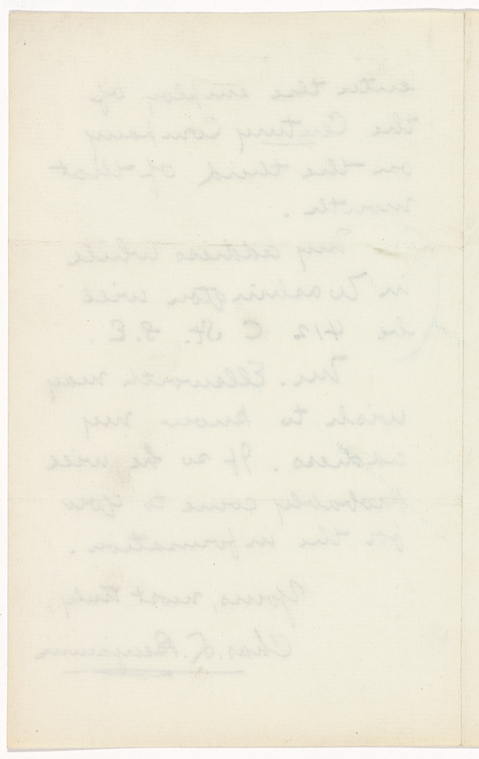 enter the employ of
the Century Company
on the third of that
month.
My address while
in Washington will
be 412 C St. S.E.
Mr. Ellsworth may
wish to know my
address. If so he will
probably come to you
for the information.
Yours, most truly,
Chas. L. Benjamin